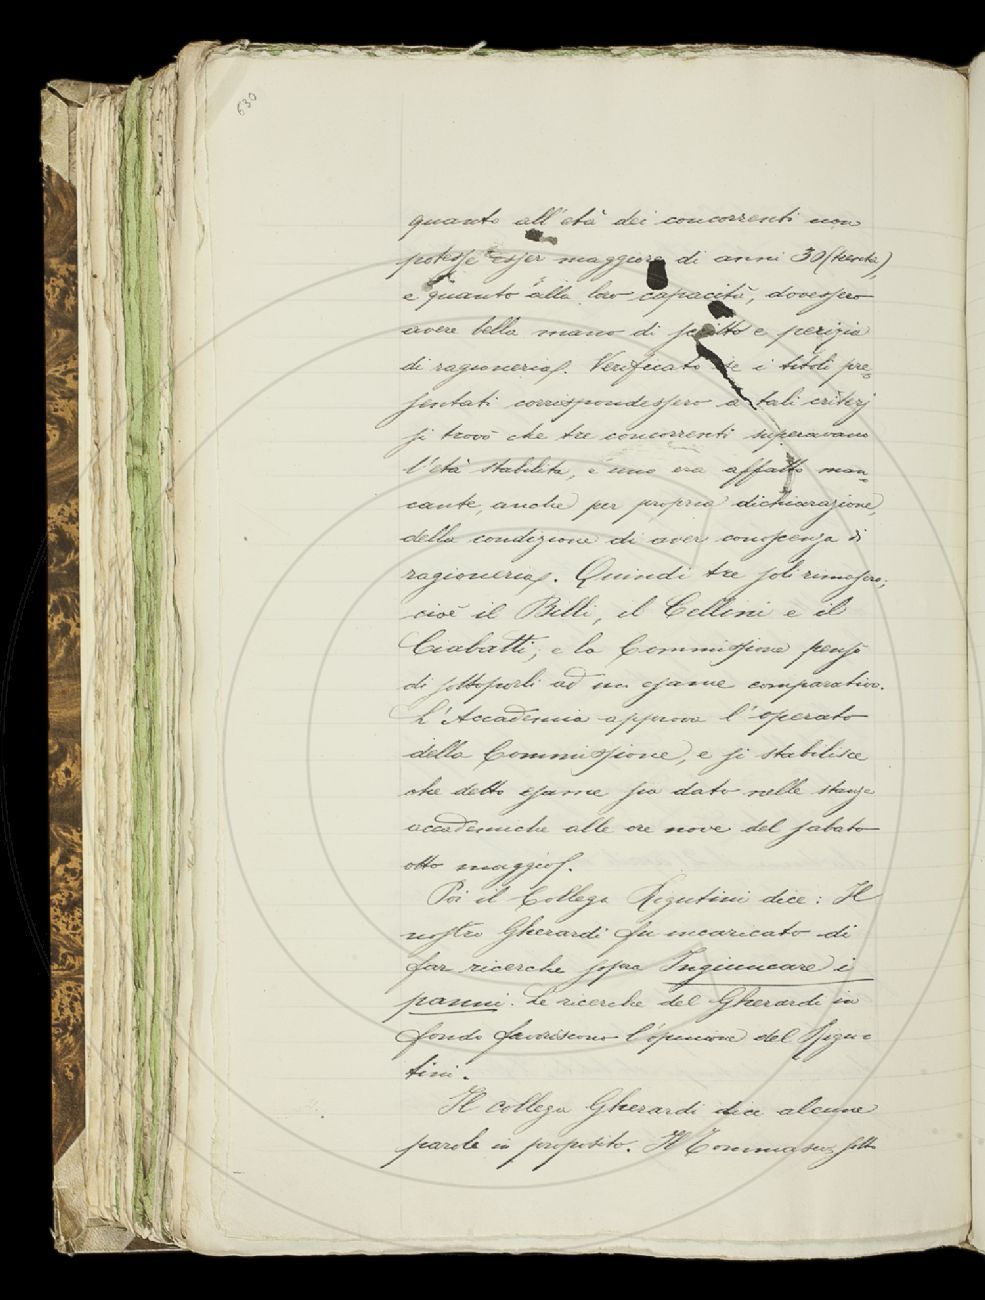 630
quanto all'età dei concorrenti non
potesse esser maggiore di anni 30 (trenta),
e quanto alla loro capacità, dovessero
avere bella mano di scritto e perizia
di ragioneria. Verificato se i titoli pre=
sentati corrispondessero a tali criterj
si trovò che tre concorrenti superavano
l'età stabilita, e uno era affatto man=
cante, anche per propria dichiarazione,
della condizione di aver conoscenza di
ragioneria. Quindi tre soli rimasero;
cioè il Billi, il Cellini e il
Ciabatti; e la Commissione pensò
di sottoporli ad un esame comparativo.
L'Accademia approva l'operato
della Commissione, e si stabilisce
che detto esame sia dato nelle stanze
accademiche alle ore nove del sabato
otto maggio.
Poi il Collega Rigutini dice: Il
nostro Gherardi fu incaricato di
far ricerche sopra Inginncare i
panni. Le ricerche del Gherardi in
fondo favoriscono l'opinione del Rigu=
tini.
Il collega Gherardi dice alcune
parole in proposito. Il Tommaseo sotto